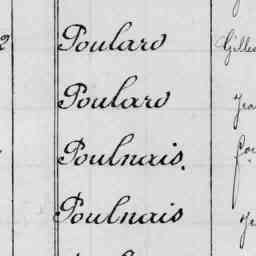 2 Poulard Gilles
Poulard
Poulnais.
Poulnais